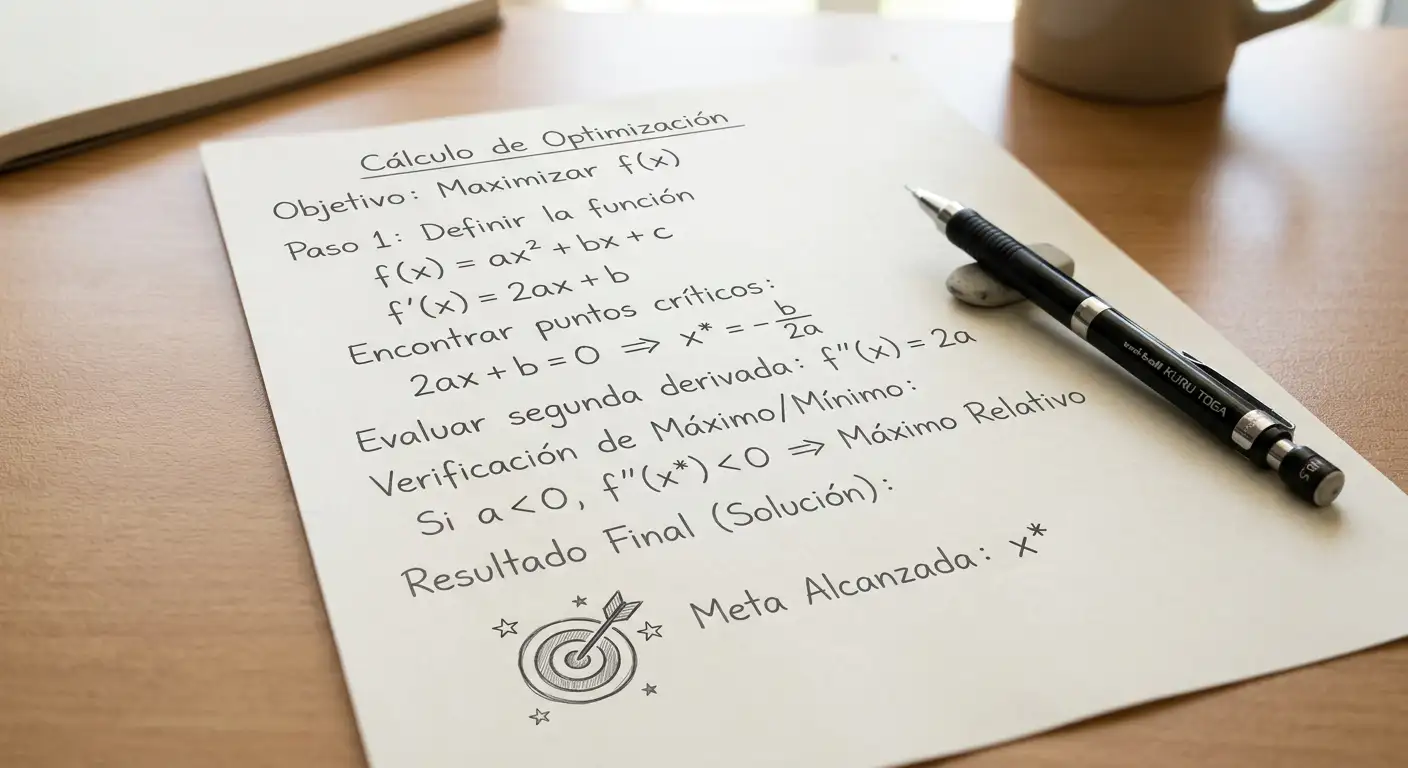 Cálculo de Optimización
Objetivo: Maximizar f(x)
Paso 1: Definir la función
f(x) = ax² + bx + c
f'(x) = 2ax + b
Encontrar puntos críticos:
2ax + b = 0 ⇒ x* = -b/2a
Evaluar segunda derivada: f''(x) = 2a
Verificación de Máximo/Mínimo:
Si a < 0, f''(x*) < 0 ⇒ Máximo Relativo
Resultado Final (Solución):
Meta Alcanzada: x*
uni-ball KURU TOGA